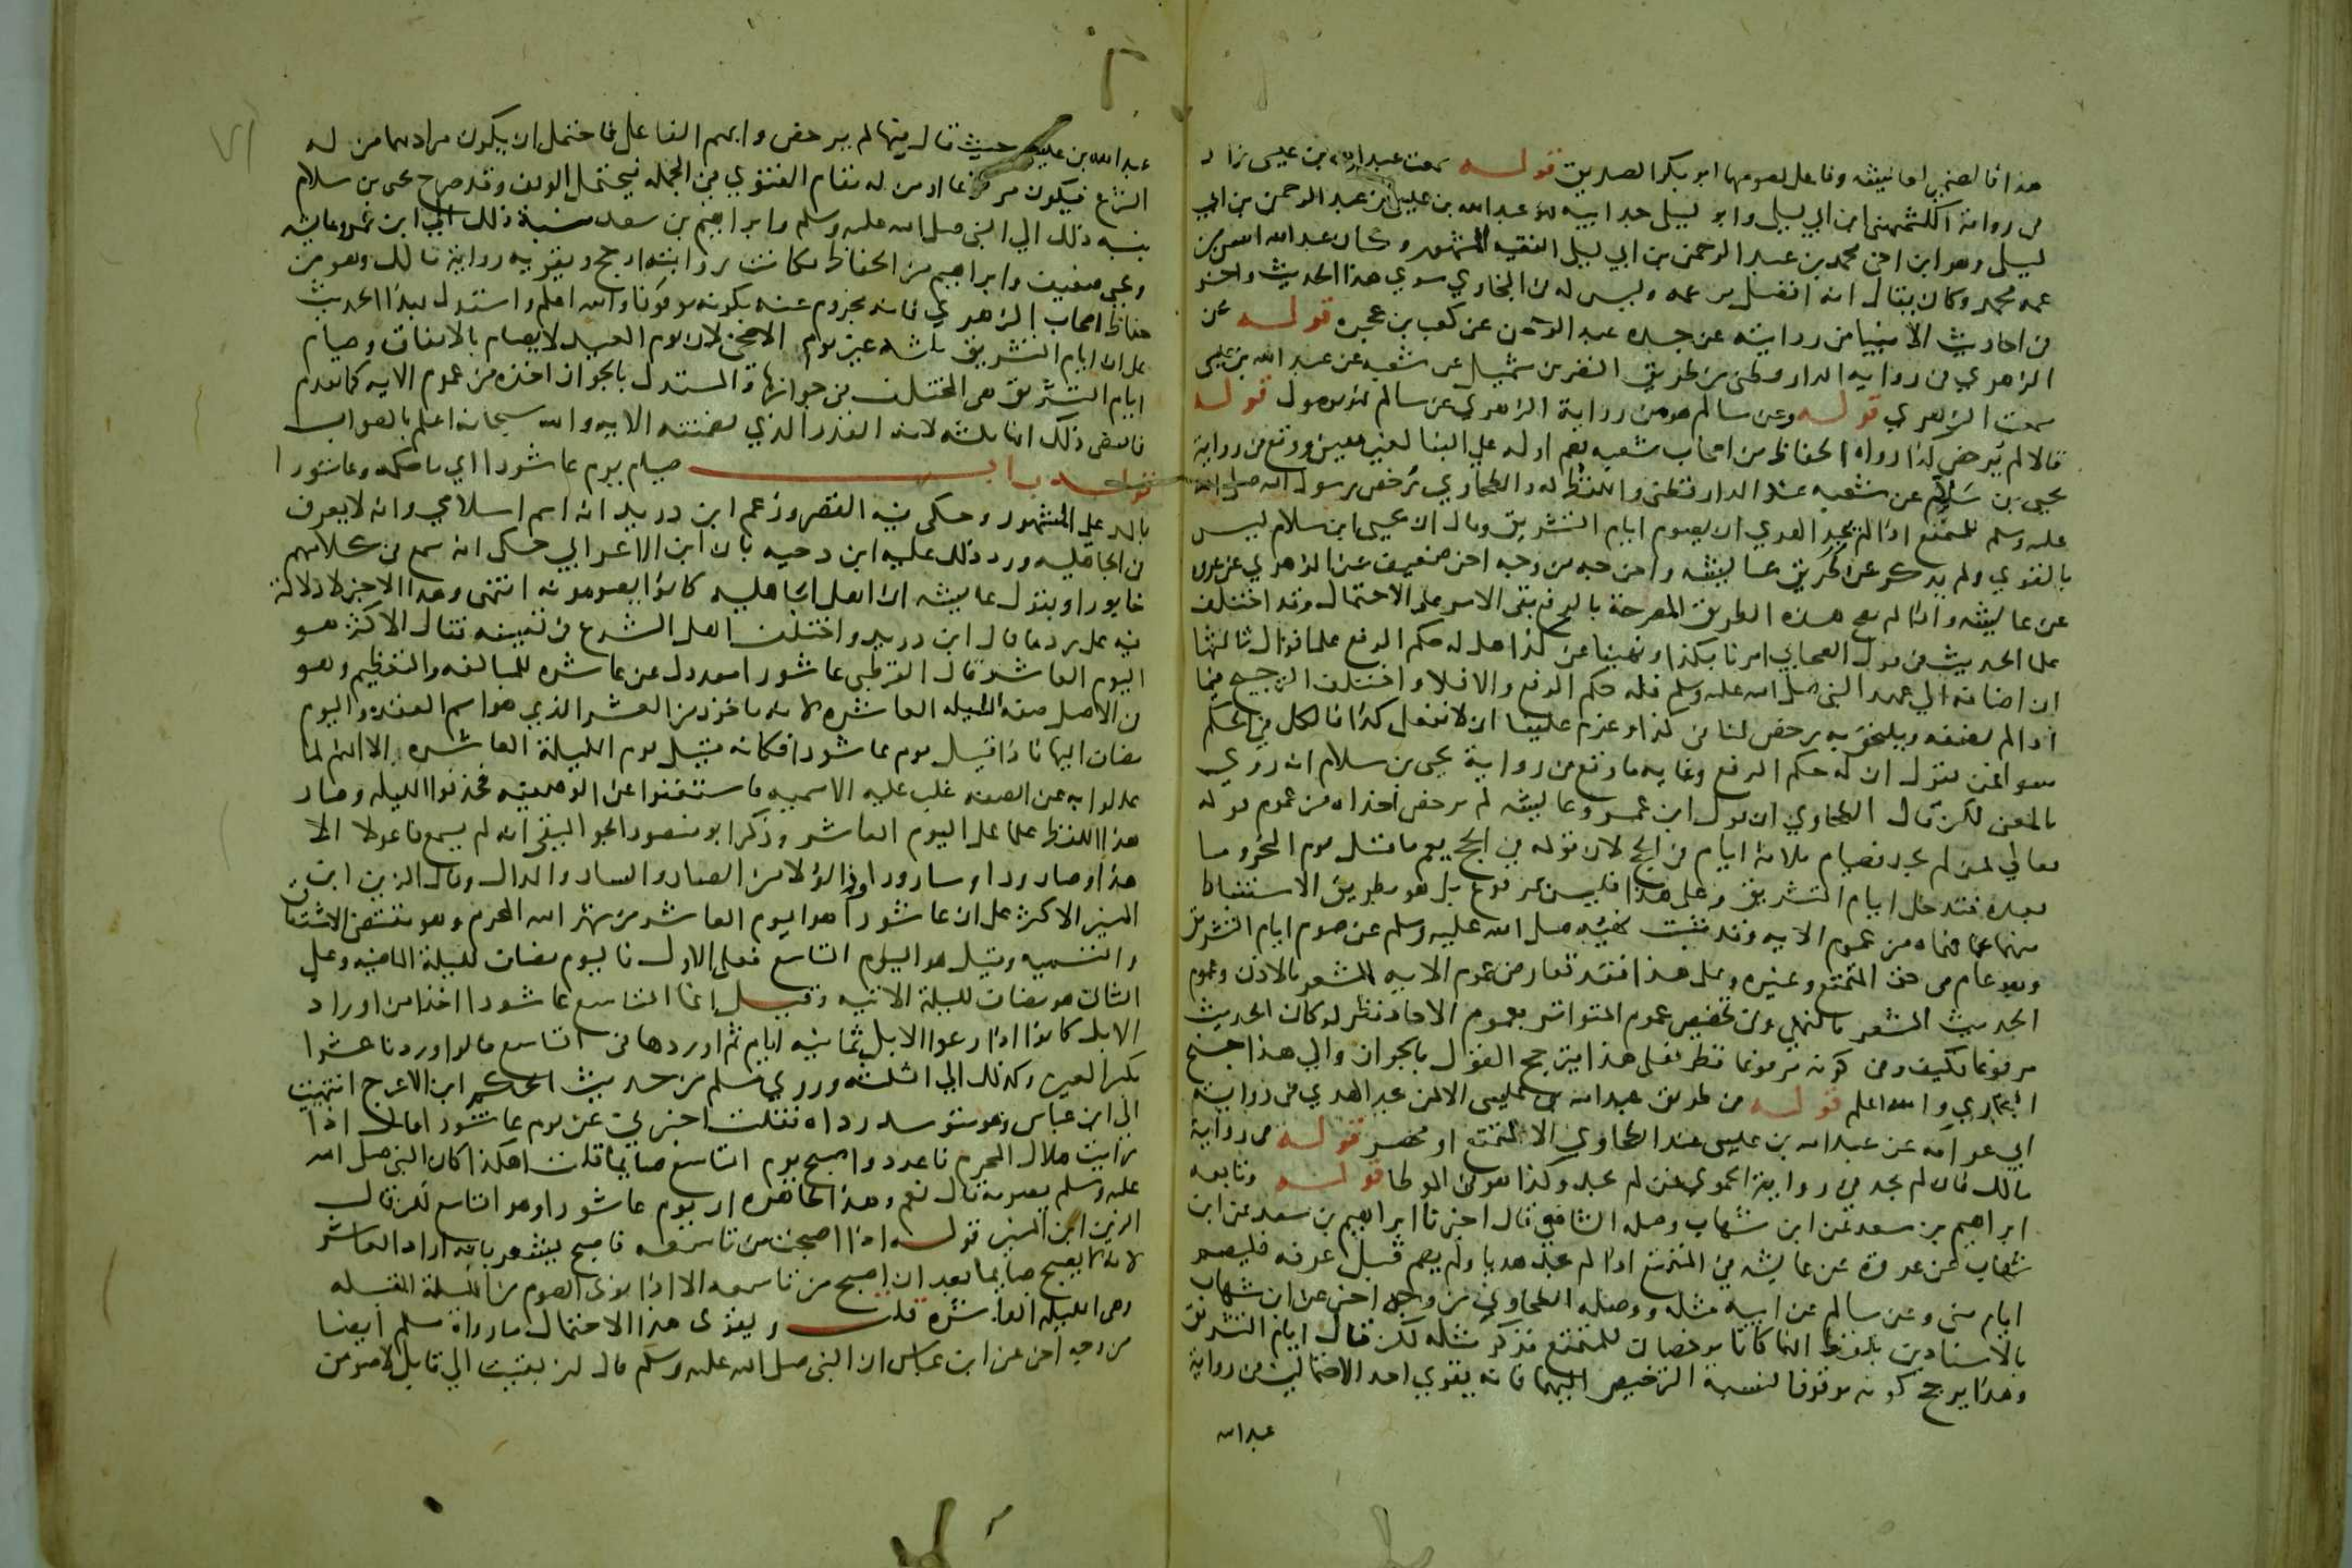 هذا فالضمير لعائشة وفاعل يصومها ابو بكر الصديق قوله سمعت عبد الله بن عيسى زاد
في رواية الكشميهني ابن ابي ليلى وابو ليلى جد ابيه فهو عبد الله بن عيسى بن عبد الرحمن بن ابي
ليلى وهو ابن اخي محمد بن عبد الرحمن بن ابي ليلى الفقيه المشهور وكان عبد الله اسن من
عمه محمد وكان يقال انه افضل من عمه وليس له في البخاري سوى هذا الحديث واخر
في احاديث الانبيا من روايته عن جده عبد الرحمن عن كعب بن عجره قوله عن
الزهري في رواية الدارقطني من طريق النضر بن شميل عن شعبه عن عبد الله بن عيسى
سمعت الزهري قوله وعن سالم هو من رواية الزهري عن سالم فهو موصول قوله
قالا لم يرخص كذا رواه الحفاظ من اصحاب شعبه بضم اوله على البنا لغير معين ووقع في رواية
يحيى بن سلام عن شعبه عند الدارقطني واللفظ له والطحاوي رخص رسول الله صلى الله
عليه وسلم للمتمتع اذا لم يجد الهدي ان يصوم ايام التشريق وقال ان يحيى ابن سلام ليس
بالقوي ولم يذكر عن طريق عائشه واخرجه من وجه اخر ضعيف عن الزهري عن عروه
عن عائشه واذا لم يصح هذه الطرق المصرحة بالرفع بقي الامر على الاحتمال وقد اختلف
علما الحديث في قول الصحابي امرنا بكذا ونهينا عن كذا هل له حكم الرفع على اقوال ثالثها
ان اضافه الي عهد النبي صلى الله عليه وسلم فله حكم الرفع والا فلا واختلف الترجيح فيما
اذا لم يضفه ويلتحق به رخص لنا في كذا وعزم علينا ان لا نفعل كذا فالكل في الحكم
سوا فمن يقول ان له حكم الرفع وغايه ما وقع في رواية يحيى بن سلام انه روي
بالمعنى لكن قال الطحاوي ان قول ابن عمر وعائشه لم يرخص اخذاه من عموم قوله
تعالي فمن لم يجد فصيام ثلاثة ايام في الحج لان قوله في الحج يعم ما قبل يوم النحر وما
بعده فتدخل ايام التشريق وعلى هذا فليس بمرفوع بل هو بطريق الاستنباط
منهما عما فهماه من عموم الايه وقد ثبت نهيه صلى الله عليه وسلم عن صوم ايام التشريق
وهو عام في حق المتمتع وغيره وعلى هذا فقد تعارض عموم الايه المشعر بالاذن وعموم
الحديث المشعر بالنهي وفي تخصيص عموم المتواتر بعموم الاحاد نظر لو كان الحديث
مرفوعا فكيف وفي كونه مرفوعا نظر فعلى هذا يترجح القول بالجواز والي هذا جنح
البخاري والله اعلم قوله من طريق عبد الله بن عيسى الا لمن عبد الهدي في رواية
ابي عوانه عن عبد الله بن عيسى عند الطحاوي الا لمتمتع او محصر قوله في رواية
مالك فان لم يجد في رواية الحموي فمن لم يجد وكذا هو في الموطا قوله وتابعه
ابراهيم بن سعد عن ابن شهاب وصله الشافعي قال اخبرنا ابراهيم بن سعد عن ابن
شهاب عن عروة عن عائشه في المتمتع اذا لم يجد هديا ولم يصم قبل عرفه فليصم
ايام منى وعن سالم عن ابيه مثله ووصله الطحاوي من وجه اخر عن ابن شهاب
بالاسنادين بلفظ انهما كانا يرخصان للمتمتع فذكر مثله لكن قال ايام التشريق
وهذا يرجح كونه موقوفا لنسبة الترخيص اليهما فانه يقوي احد الاحتمالين في رواية
عبد الله
عبد الله بن عيسى حيث قال فيها لم يرخص وابهم الفاعل فاحتمل ان يكون مرادهما من له
الشرع فيكون مرفوعا او من له مقام الفتوي في الجمله فيحتمل الوقف وقد صرح يحيى بن سلام
بنسبه ذلك الي النبي صلى الله عليه وسلم وابراهيم بن سعد بنسبة ذلك الي ابن عمر وعائشه
ويحيى ضعيف وابراهيم من الحفاظ فكانت روايته ارجح ويقويه رواية مالك وهو من
حفاظ اصحاب الزهري فانه مجزوم عنه بكونه موقوفا والله اعلم واستدل بهذا الحديث
على ان ايام التشريق ثلثه غير يوم الاضحى لان يوم العيد لا يصام بالاتفاق وصيام
ايام التشريق هي المختلف في جوازها والمستدل بالجواز اخذه من عموم الايه كما تقدم
فاقتضى ذلك انها ثلثه لانه القدر الذي تضمنته الايه والله سبحانه اعلم بالصواب
قوله باب صيام يوم عاشورا اي ما حكمه وعاشورا
بالمد على المشهور وحكى فيه القصر وزعم ابن دريد انه اسم اسلامي وانه لا يعرف
في الجاهليه ورد ذلك عليه ابن دحيه بان ابن الاعرابي حكى انه سمع في كلامهم
خابورا وبقول عائشه ان اهل الجاهليه كانوا يصومونه انتهى وهذا الاخير لا دلالة
فيه على رد ما قال ابن دريد واختلف اهل الشرع في تعيينه فقال الاكثر هو
اليوم العاشر قال القرطبي عاشورا معدول عن عاشره للمبالغه والتعظيم وهو
في الاصل صفه الليله العاشره لانه ماخوذ من العشر الذي هو اسم العقد واليوم
مضاف اليها فاذا قيل يوم عاشورا فكانه قيل يوم الليلة العاشره الا انهم لما
عدلوا به عن الصفه غلب عليه الاسميه فاستغنوا عن الموصوف فحذفوا الليله وصار
هذا اللفظ علما على اليوم العاشر وذكر ابو منصور الجواليقي انه لم يسمع فاعولا الا
هذا وضارورا وسارورا ودالولا من الضار والسار والدال وقال الزين ابن
المنير الاكثر على ان عاشورا هو اليوم العاشر من شهر الله المحرم وهو مقتضى الاشتقاق
والتسميه وقيل هو اليوم التاسع فعلى الاول فاليوم مضاف لليلة الماضيه وعلى
الثاني هو مضاف لليلة الاتيه وقيل انما التاسع عاشورا اخذا من اوراد
الابل كانوا اذا رعوا الابل ثمانيه ايام ثم اوردها في التاسع قالوا وردنا عشرا
بكسر العين وكذلك الي الثلثه وروي مسلم من حديث الحكم ابن الاعرج انتهيت
الي ابن عباس وهو متوسد رداه فقلت اخبرني عن يوم عاشورا قال اذا
رايت هلال المحرم فاعدد واصبح يوم التاسع صايما قلت اهكذا كان النبي صلى الله
عليه وسلم يصومه قال نعم وهذا ظاهره ان يوم عاشورا هو التاسع لكن قال
الزين ابن المنير قوله اذا اصبحت من تاسعه فاصبح يشعر بانه اراد العاشر
لانه لا يصبح صايما بعد ان اصبح من تاسعه الا اذا نوى الصوم من الليلة المقبله
وهي الليله العاشره قلت ويقوى هذا الاحتمال ما رواه مسلم ايضا
من وجه اخر عن ابن عباس ان النبي صلى الله عليه وسلم قال لئن بقيت الي قابل لاصومن